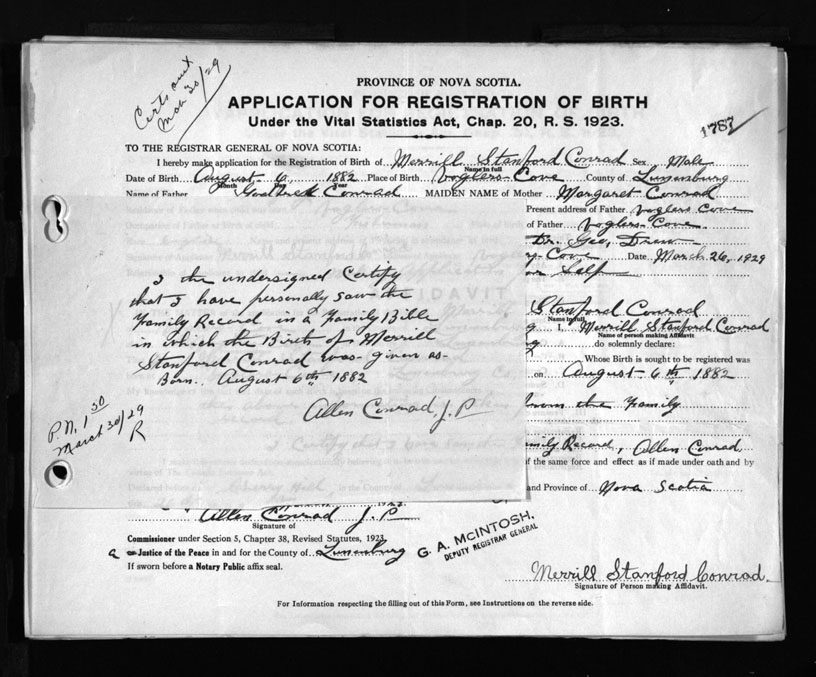 Certs out
Mar 30/29
PROVINCE OF NOVA SCOTIA.
APPLICATION FOR REGISTRATION OF BIRTH
Under the Vital Statistics Act, Chap. 20, R. S. 1923.
1787
TO THE REGISTRAR GENERAL OF NOVA SCOTIA:
I hereby make application for the Registration of Birth of Merrill Stanford Conrad Sex Male
Name in full
Date of Birth August 6 1882 Place of Birth Voglers Cove County of Lunenburg
Month Year
Name of Father Conrad MAIDEN NAME of Mother Margaret Conrad
Present address of Father Voglers Cove
of Father Voglers Cove
Dr. Geo,
Cove Date March 26, 1929
Self
I the undersigned Certify
that I have personally saw the
Family Record in a Family Bible
in which the Birth of Merrill
Stanford Conrad was given as
Born. August 6th 1882
Allen Conrad, J. P.
P.N. 1 50
March 30/29
R
AFFIDAVIT
Stanford Conrad
Name in full
I, Merrill Stanford Conrad
Name of person making Affidavit
do solemnly declare:
Whose Birth is sought to be registered was
on August 6th 1882
from the Family
Family Record, Allen Conrad
of the same force and effect as if made under oath and by
and Province of Nova Scotia
Allen Conrad J. P.
Signature of
Commissioner under Section 5, Chapter 38, Revised Statutes, 1923.
a or Justice of the Peace in and for the County of Lunenburg
If sworn before a Notary Public affix seal.
G. A. McINTOSH,
DEPUTY REGISTRAR GENERAL
Merrill Stanford Conrad
Signature of Person making Affidavit.
For Information respecting the filling out of this Form, see Instructions on the reverse side.